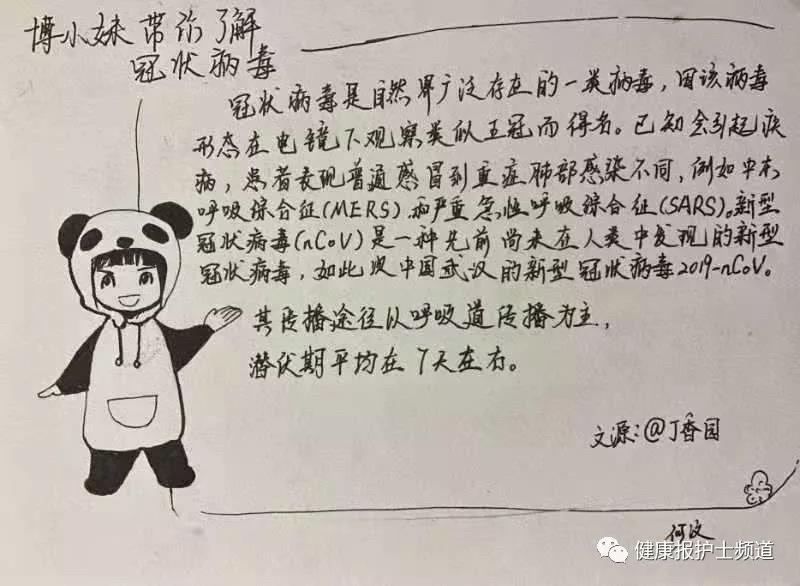 博小妹带你了解
冠状病毒
冠状病毒是自然界广泛存在的一类病毒，因该病毒
形态在电镜下观察类似王冠而得名。已知会引起疾
病，患者表现普通感冒到重症肺部感染不同，例如中东
呼吸综合征(MERS)和严重急性呼吸综合征(SARS)。新型
冠状病毒(nCoV)是一种先前尚未在人类中发现的新型
冠状病毒，如此次中国武汉的新型冠状病毒2019-nCoV。
其传播途径以呼吸道传播为主，
潜伏期平均在7天左右。
文源:@丁香园
何汶
健康报护士频道